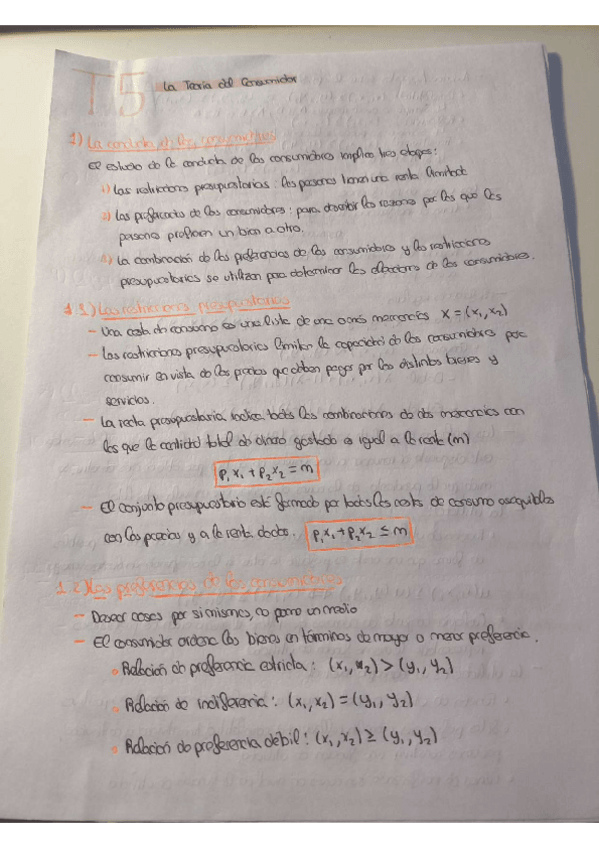 T5 La Teoría del Consumidor
1) La conducta de los consumidores
El estudio de la conducta de los consumidores implica tres etapas:
1) Las restricciones presupuestarias: las personas tienen una renta limitada
2) Las preferencias de los consumidores: para describir las razones por las que las
personas prefieren un bien a otro.
La combinación de las preferencias de los consumidores y las restricciones
presupuestarias se utilizan para determinar las elecciones de los consumidores.
1.1) Las restricciones presupuestarias
- Una cesta de consumo es una lista de una o más mercancías X = (x₁, x₂)
- Las restricciones presupuestarias limitan la capacidad de los consumidores para
consumir en vista de los precios que deben pagar por los distintos bienes y
servicios.
- La recta presupuestaria indica todas las combinaciones de dos mercancías con
las que la cantidad total de dinero gastado es igual a la renta (m)
p₁x₁ + p₂x₂ = m
- El conjunto presupuestario está formado por todas las cestas de consumo asequibles
con los precios y a la renta dados. p₁x₁ + p₂x₂ ≤ m
1.2) Las preferencias de los consumidores
- Desear cosas por si mismas, no como un medio
- El consumidor ordena los bienes en términos de mayor o menor preferencia.
• Relación de preferencia estricta: (x₁, x₂) > (y₁, y₂)
• Relación de indiferencia: (x₁, x₂) = (y₁, y₂)
• Relación de preferencia débil: (x₁, x₂) ≥ (y₁, y₂)